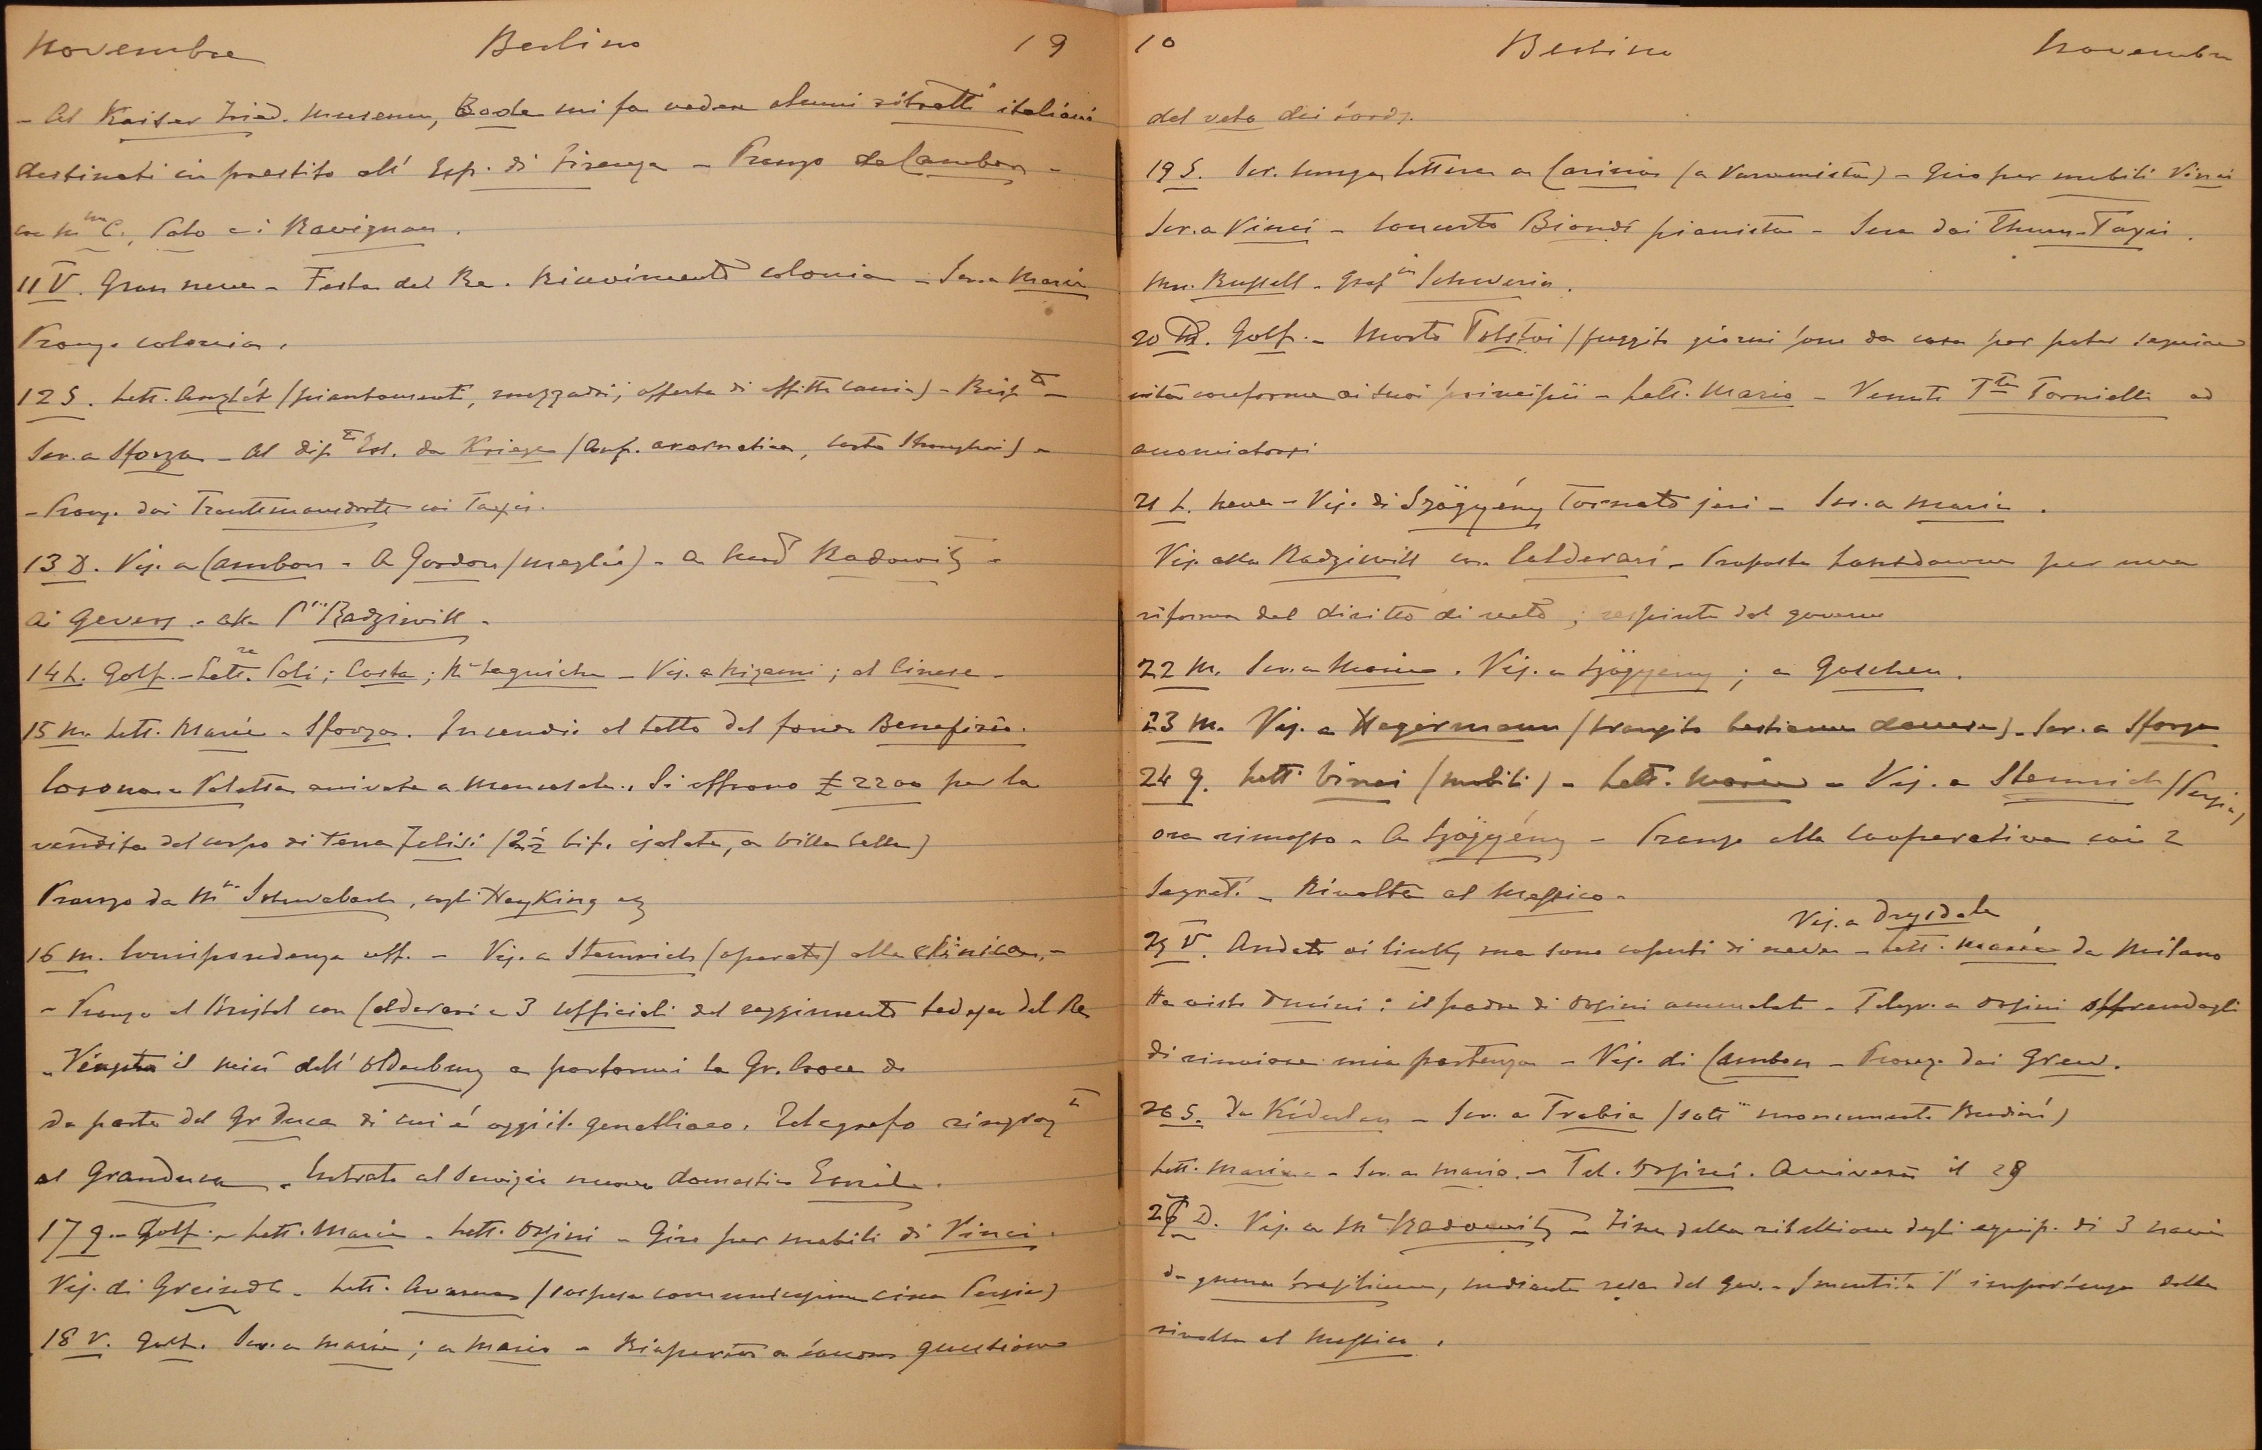 Novembre Berlino 19
- Al Kaiser Fried. Museum, Bode mi fa vedere alcuni ritratti italiani
destinati in prestito all' Esp. di Firenze - Pranzo da Cambon -
con Mme C., Polo e i Ravignan.
11 V. Gran neve - Festa del Re. Ricevimento colonia - Scr. a Maria
Pranzo colonia.
12 S. Lett. (piantamenti, mezzadri, offerta di affitto) -
Scr. a Sforza - Al dipto Est. da Kriege (Conf. aeronatica, Shanghai) -
- Pranzo dai Trauttmansdorff coi Taxis.
13 D. Vis. a Cambon - A Gordon (meglio) - a Radowitz -
Ai Gevers - alla Pssa Radziwill -
14 L. Golf - Lettre Poli; Costa; Me Laguiche - Vis. a Nizami; al Cinese -
15 M. Lett. Maria - Sforza. Incendio al tetto del Benefizio.
Corona e Valletta a . Si offrono £ 2200 per la
vendita del corpo di terra Felisi (2½ bif. isolate, a Villa Cella)
Pranzo da Mr Schwabach, cogli Heyking
16 M. Corrispondenza uff. - Vis. a Stemrich (operato) alla clinica, -
- Pranzo al Bristol con Calderari e 3 Ufficiali del reggimento tedesco del Re
- Venuto il min. dell' Oldenburg a portarmi la Gr. Croce da
da parte del Gr. Duca di cui è oggi il genetliaco. Telegrafo
al Granduca - Entrato al servizio nuovo domestico Emile.
17 G. - Golf - Lett. Maria - Lett. Orsini - Giro per mobili di Vinci.
Vis. di Greindl - Lett. Avarna (sospesa comunicazione circa Persia)
18 V. Golf. Scr. a Maria; a Mario - Riaperta a Londra questione
10 Berlino Novembre
del veto dei Lords.
19 S. Scr. lunga lettera a - Giro per mobili Vinci
Scr. a Vinci - Concerto Biondi pianista - Sera dai Thurn-Taxis.
Mr. Russell - Grafin Schwerin.
20 D. Golf. - Morto Tolstoi (fuggito giorni sono da casa per poter seguire
vita conforme ai suoi principii - Lett. Mario - Venuti Tornielli ad
annunciatosi
21 L. Neve - Vis. di Szögyény tornato jeri - Scr. a Maria.
Vis. alla Radziwill con Calderari - Proposta Lansdowne per una
riforma del diritto di veto; respinta dal governo
22 M. Scr. a Maria. Vis. a Szögyeny; a Goschen.
23 M. Vis. a Hegermann (transito bestiame danese) - Scr. a Sforza
24 G. Lett. Vinci (mobili) - Lett. Maria - Vis. a Stemrich (Persia)
ora rimosso - A Szögyény - Pranzo alla Cooperativa coi 2
Segret. - Rivolta al Messico -
Vis. a Drysdale
25 V. Andato ai links ma sono coperti di neve - Lett. Maria da Milano
Ha visto : il padre di Orsini ammalato - Telegr. a Orsini offrendogli
di rinviare mia partenza - Vis. di Cambon - Pranzo dai Grew.
26 S. Da Kiderlen - Scr. a Trabia (sottne monumento Rudinì)
Lett. Maria - Scr. a Mario. - Tel. Orsini. Arriverà il 29
27 D. Vis. a Me Radowitz - Fine della ribellione degli equip. di 3 navi
da guerra brasiliane, mediante resa del Gov. - Smentita l' importanza della
rivolta al Messico.